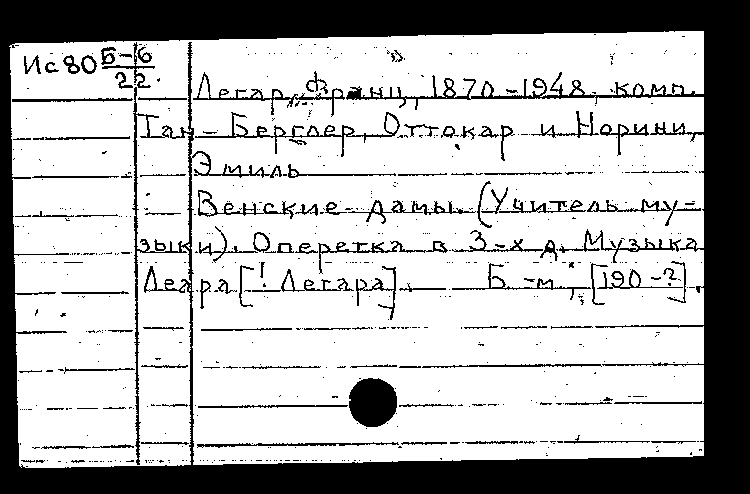 Ис80 Б-6/22.
Легар, Франц, 1870-1948, комп.
Тан-Берглер, Оттокар и Норини,
Эмиль
Венские дамы. (Учитель му-
зыки). Оперетка в 3-х д. Музыка
Леара [! Легара]. Б.-м., [190-?].